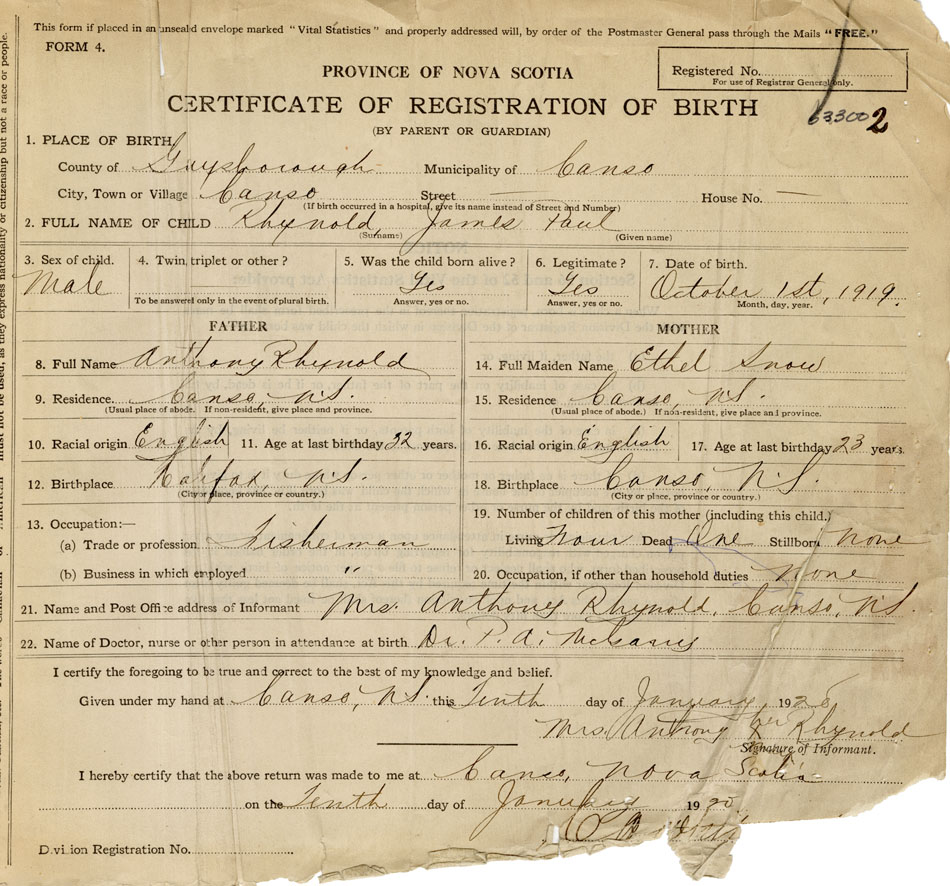 This form if placed in an unseald envelope marked "Vital Statistics" and properly addressed will, by order of the Postmaster General pass through the Mails "FREE."
FORM 4.
Registered No.
For use of Registrar General only.
PROVINCE OF NOVA SCOTIA
CERTIFICATE OF REGISTRATION OF BIRTH
(BY PARENT OR GUARDIAN)
633002
1. PLACE OF BIRTH
County of Guysborough Municipality of Canso
City, Town or Village Canso Street — House No. —
(If birth occurred in a hospital, give its name instead of Street and Number)
2. FULL NAME OF CHILD Rhynold, James Paul
(Surname) (Given name)
3. Sex of child. 4. Twin, triplet or other ? 5. Was the child born alive ? 6. Legitimate ? 7. Date of birth.
Male Yes Yes October 1st, 1919.
To be answered only in the event of plural birth. Answer, yes or no. Answer, yes or no. Month, day, year.
FATHER
8. Full Name Anthony Rhynold
9. Residence. Canso, N.S.
(Usual place of abode. If non-resident, give place and province.
10. Racial origin English 11. Age at last birthday 32 years.
12. Birthplace Halifax, N.S.
(City or place, province or country.)
13. Occupation:—
(a) Trade or profession Fisherman
(b) Business in which employed "
MOTHER
14. Full Maiden Name Ethel Snow
15. Residence Canso, N.S.
(Usual place of abode.) If non-resident, give place and province.
16. Racial origin English 17. Age at last birthday 23 years.
18. Birthplace Canso, N.S.
(City or place, province or country.)
19. Number of children of this mother (including this child.)
Living Four Dead One Stillborn None
20. Occupation, if other than household duties None
21. Name and Post Office address of Informant Mrs. Anthony Rhynold, Canso, N.S.
22. Name of Doctor, nurse or other person in attendance at birth Dr. P. A.
I certify the foregoing to be true and correct to the best of my knowledge and belief.
Given under my hand at Canso, N.S. this Tenth day of January 1920
Mrs. Anthony her X Rhynold
Signature of Informant.
I hereby certify that the above return was made to me at Canso, Nova Scotia
on the Tenth day of January 1920
Division Registration No.